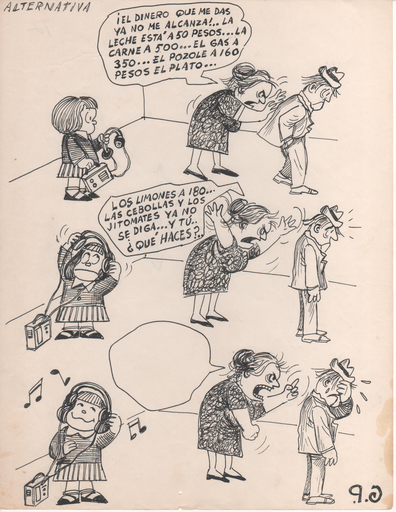 ALTERNATIVA
¡EL DINERO QUE ME DAS
YA NO ME ALCANZA!.. LA
LECHE ESTA' A 50 PESOS...LA
CARNE A 500...EL GAS A
350...EL POZOLE A 160
PESOS EL PLATO...
LOS LIMONES A 180...
LAS CEBOLLAS Y LOS
JITOMATES YA NO
SE DIGA...Y TÚ..
¿QUÉ HACES?..
G.P.